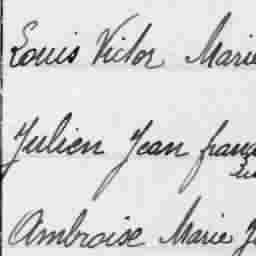 Louis Victor Marie
Julien Jean
Ambroise Marie